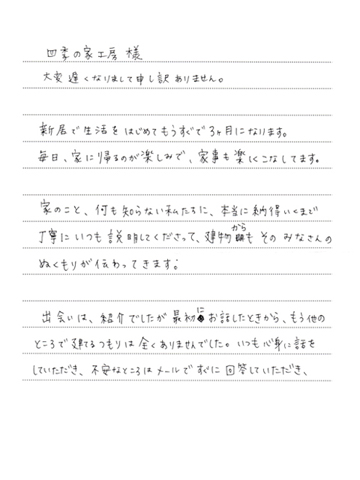 四季の家工房 様
大変 遅くなりまして申し訳ありません。
新居で生活をはじめてもうすぐで3ヶ月になります。
毎日、家に帰るのが楽しみで、家事も楽しくこなしてます。
家のこと、何も知らない私たちに、本当に納得いくまで
丁寧にいつも説明してくださって、建物からも そのみなさんの
ぬくもりが伝わってきます。
出会いは、紹介でしたが 最初に お話したときから、もう他の
ところで建てるつもりは全くありませんでした。いつも心身に話を
していただき、不安なところはメールですぐに回答していただき、